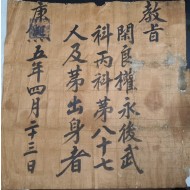 教旨
閑良權永後武
科丙科第八十七
人及第出身者
康熙五年四月二十三日